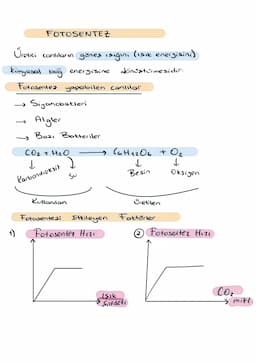 FOTOSENTEZ
Üretici canlıların güneş ışığını (ışık enerjisini)
kimyasal bağ enerjisine dönüştürmesidir.
Fotosentez yapabilen canlılar
→ Siyanobakteri
→ Algler
→ Bazı Bakteriler
CO2 + H2O → C6H12O6 + O2
Karbondioksit Su Besin Oksijen
Kullanılan Üretilen
Fotosentezi Etkileyen Faktörler
1) Fotosentez Hızı 2 Fotosentez Hızı
Işık
Şiddeti
CO2
mikt.